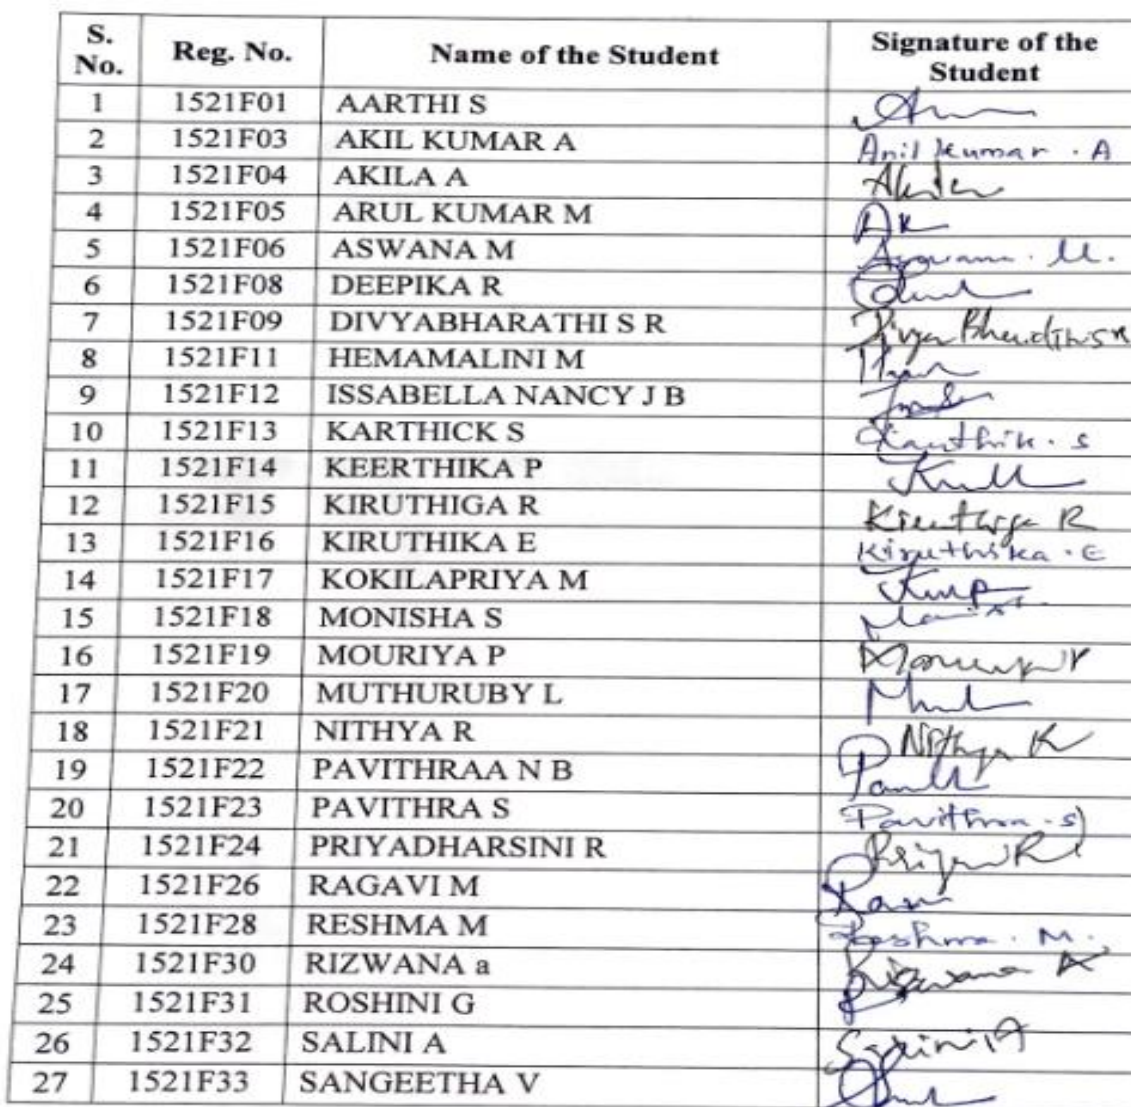 S. No. Reg. No. Name of the Student Signature of the Student
1 1521F01 AARTHI S
2 1521F03 AKIL KUMAR A Anil kumar . A
3 1521F04 AKILA A
4 1521F05 ARUL KUMAR M AK
5 1521F06 ASWANA M
6 1521F08 DEEPIKA R
7 1521F09 DIVYABHARATHI S R
8 1521F11 HEMAMALINI M
9 1521F12 ISSABELLA NANCY J B
10 1521F13 KARTHICK S Karthik . S
11 1521F14 KEERTHIKA P
12 1521F15 KIRUTHIGA R Kiruthiga R
13 1521F16 KIRUTHIKA E Kiruthika . E
14 1521F17 KOKILAPRIYA M
15 1521F18 MONISHA S
16 1521F19 MOURIYA P
17 1521F20 MUTHURUBY L
18 1521F21 NITHYA R Nithya R
19 1521F22 PAVITHRAA N B
20 1521F23 PAVITHRA S Pavithra . S
21 1521F24 PRIYADHARSINI R
22 1521F26 RAGAVI M
23 1521F28 RESHMA M Reshma . M .
24 1521F30 RIZWANA a Rizwana A
25 1521F31 ROSHINI G
26 1521F32 SALINI A Salini A
27 1521F33 SANGEETHA V